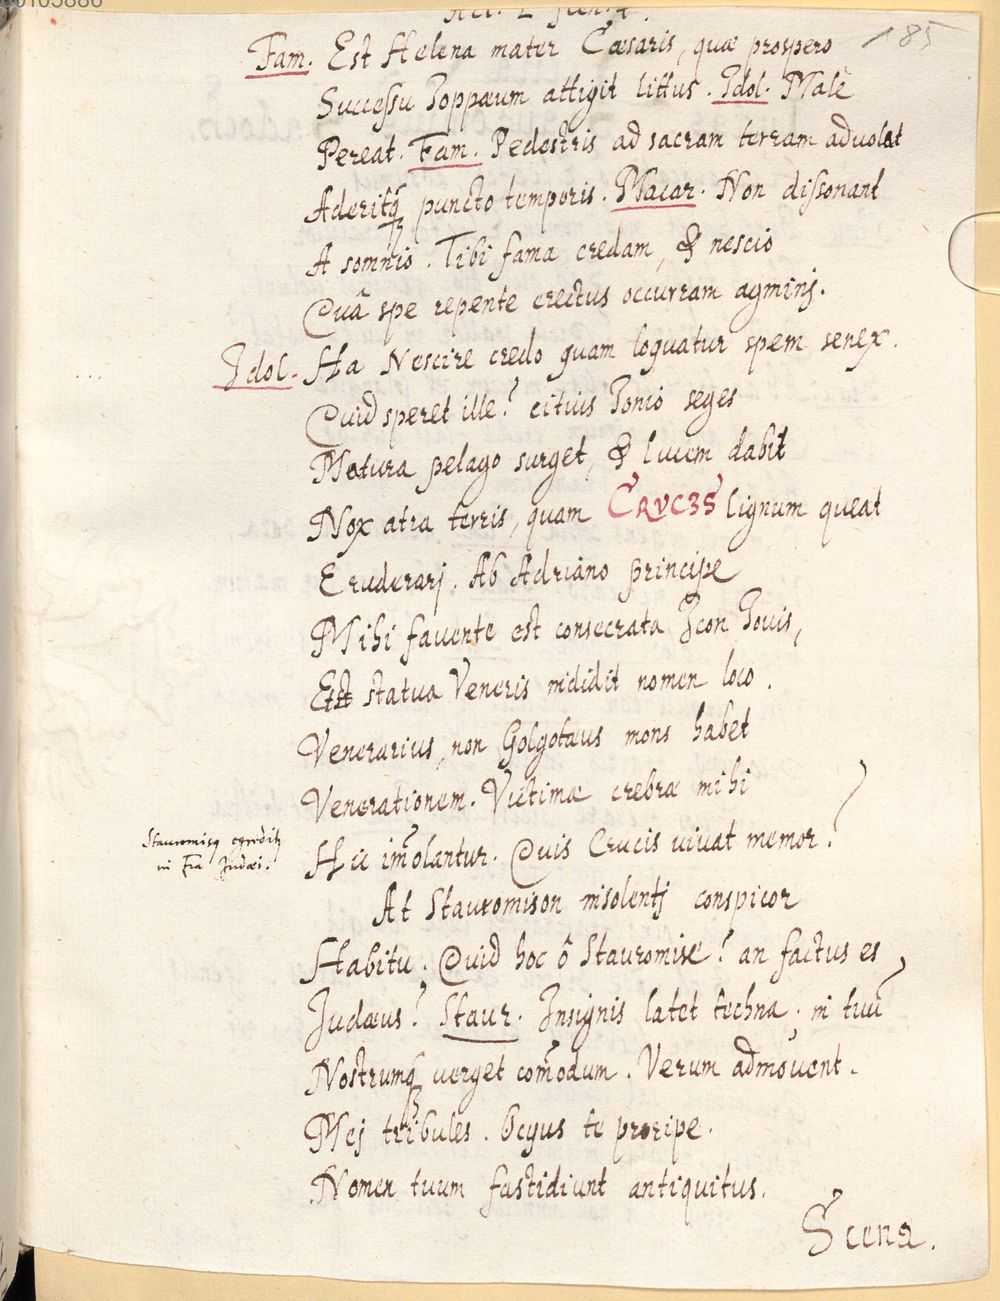 Act. 2 scen. 4.
185
Fam. Est Helena mater Cæsaris, quæ prospero
Successu Joppæum attigit littus. Idol. Malè
Pereat. Fam. Pedestris ad sacram terram advolat
Aderitq́ puncto temporis. Macar. Non dissonant
A somnio. Tibi fama credam, & nescio
Quâ spe repente erectus occurram agminj.
Idol. Ha Nescire credo quam loquatur spem senex.
Quid speret ille? citius Jonio seges
Matura pelago surget, & lucem dabit
Nox atra terris, quam CRVCIS lignum queat
Eruderarj. Ab Adriano principe
Mihi favente est consecrata Icon Jovis,
Et statua Veneris indidit nomen loco.
Venerarius, non Golgotæus mons habet
Venerationem. Victimæ crebræ mihi
Stauromisq egredit
in Judæi.
Hic im̃olantur. Quis Crucis vivat memor?
At Stauromison insolentj conspicor
Habitu. Quid hoc ô Stauromise? an factus es
Judæus? Staur. Insignis latet techna, in tuũ
Nostrumq́ verget com̃odum. Verum admovent.
Mej tribules. Ocyus te proripe.
Nomen tuum fastidiunt antiquitus.
Scena.